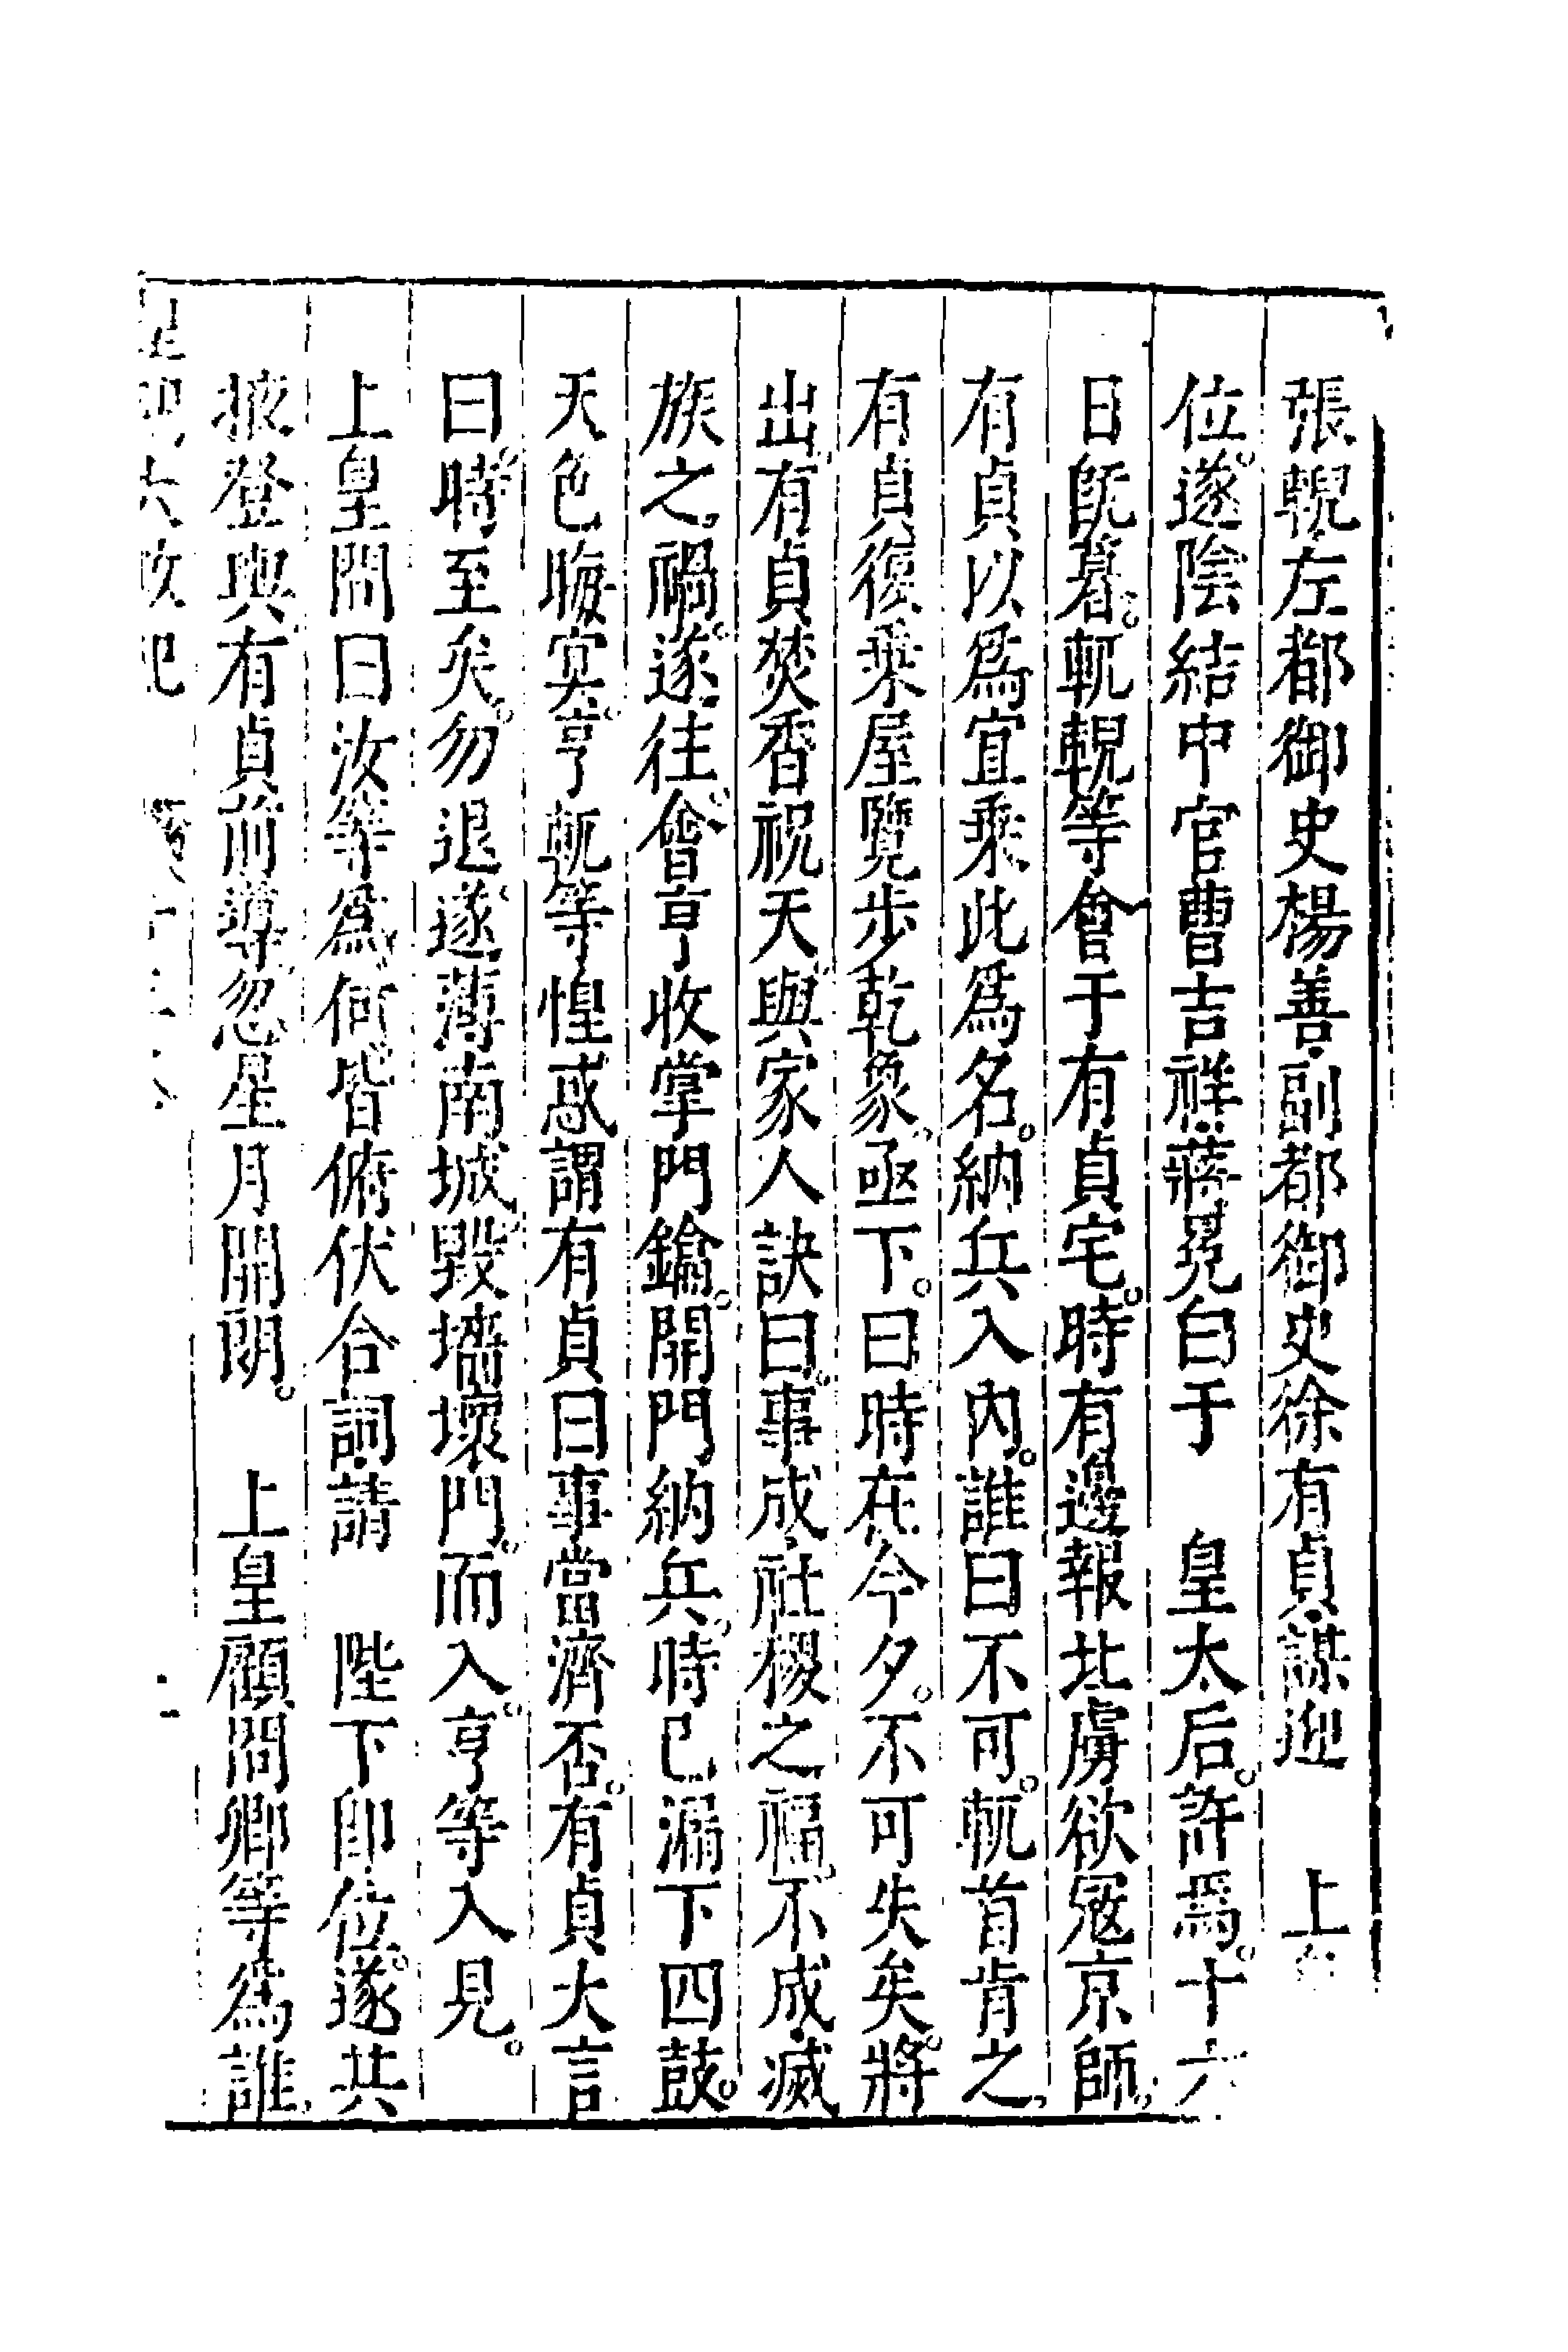 張輗左都御史楊善副都御史徐有貞謀迎　上
位遂陰結中官曹吉祥蔣冕白于　皇太后許爲十六
日旣暮軏輗等會于有貞宅時有邊報北虜欲冦京師
有貞以爲宜乘此爲名納兵入內誰曰不可軏首肯之
有貞復乘屋覽步乾象亟下曰時在今夕不可失矣將
出有貞焚香祝天與家人訣曰事成社稷之福不成滅
族之禍遂往會亨收掌門鑰開門納兵時已漏下四鼓
天色晦冥亨軏等惶惑謂有貞曰事當濟否有貞大言
曰時至矣勿退遂薄南城毀墻壞門而入亨等入見
上皇問曰汝等爲何皆俯伏合詞請　陛下卽位遂共
掖登輿有貞前導忽星月開朗　上皇顧問卿等爲誰